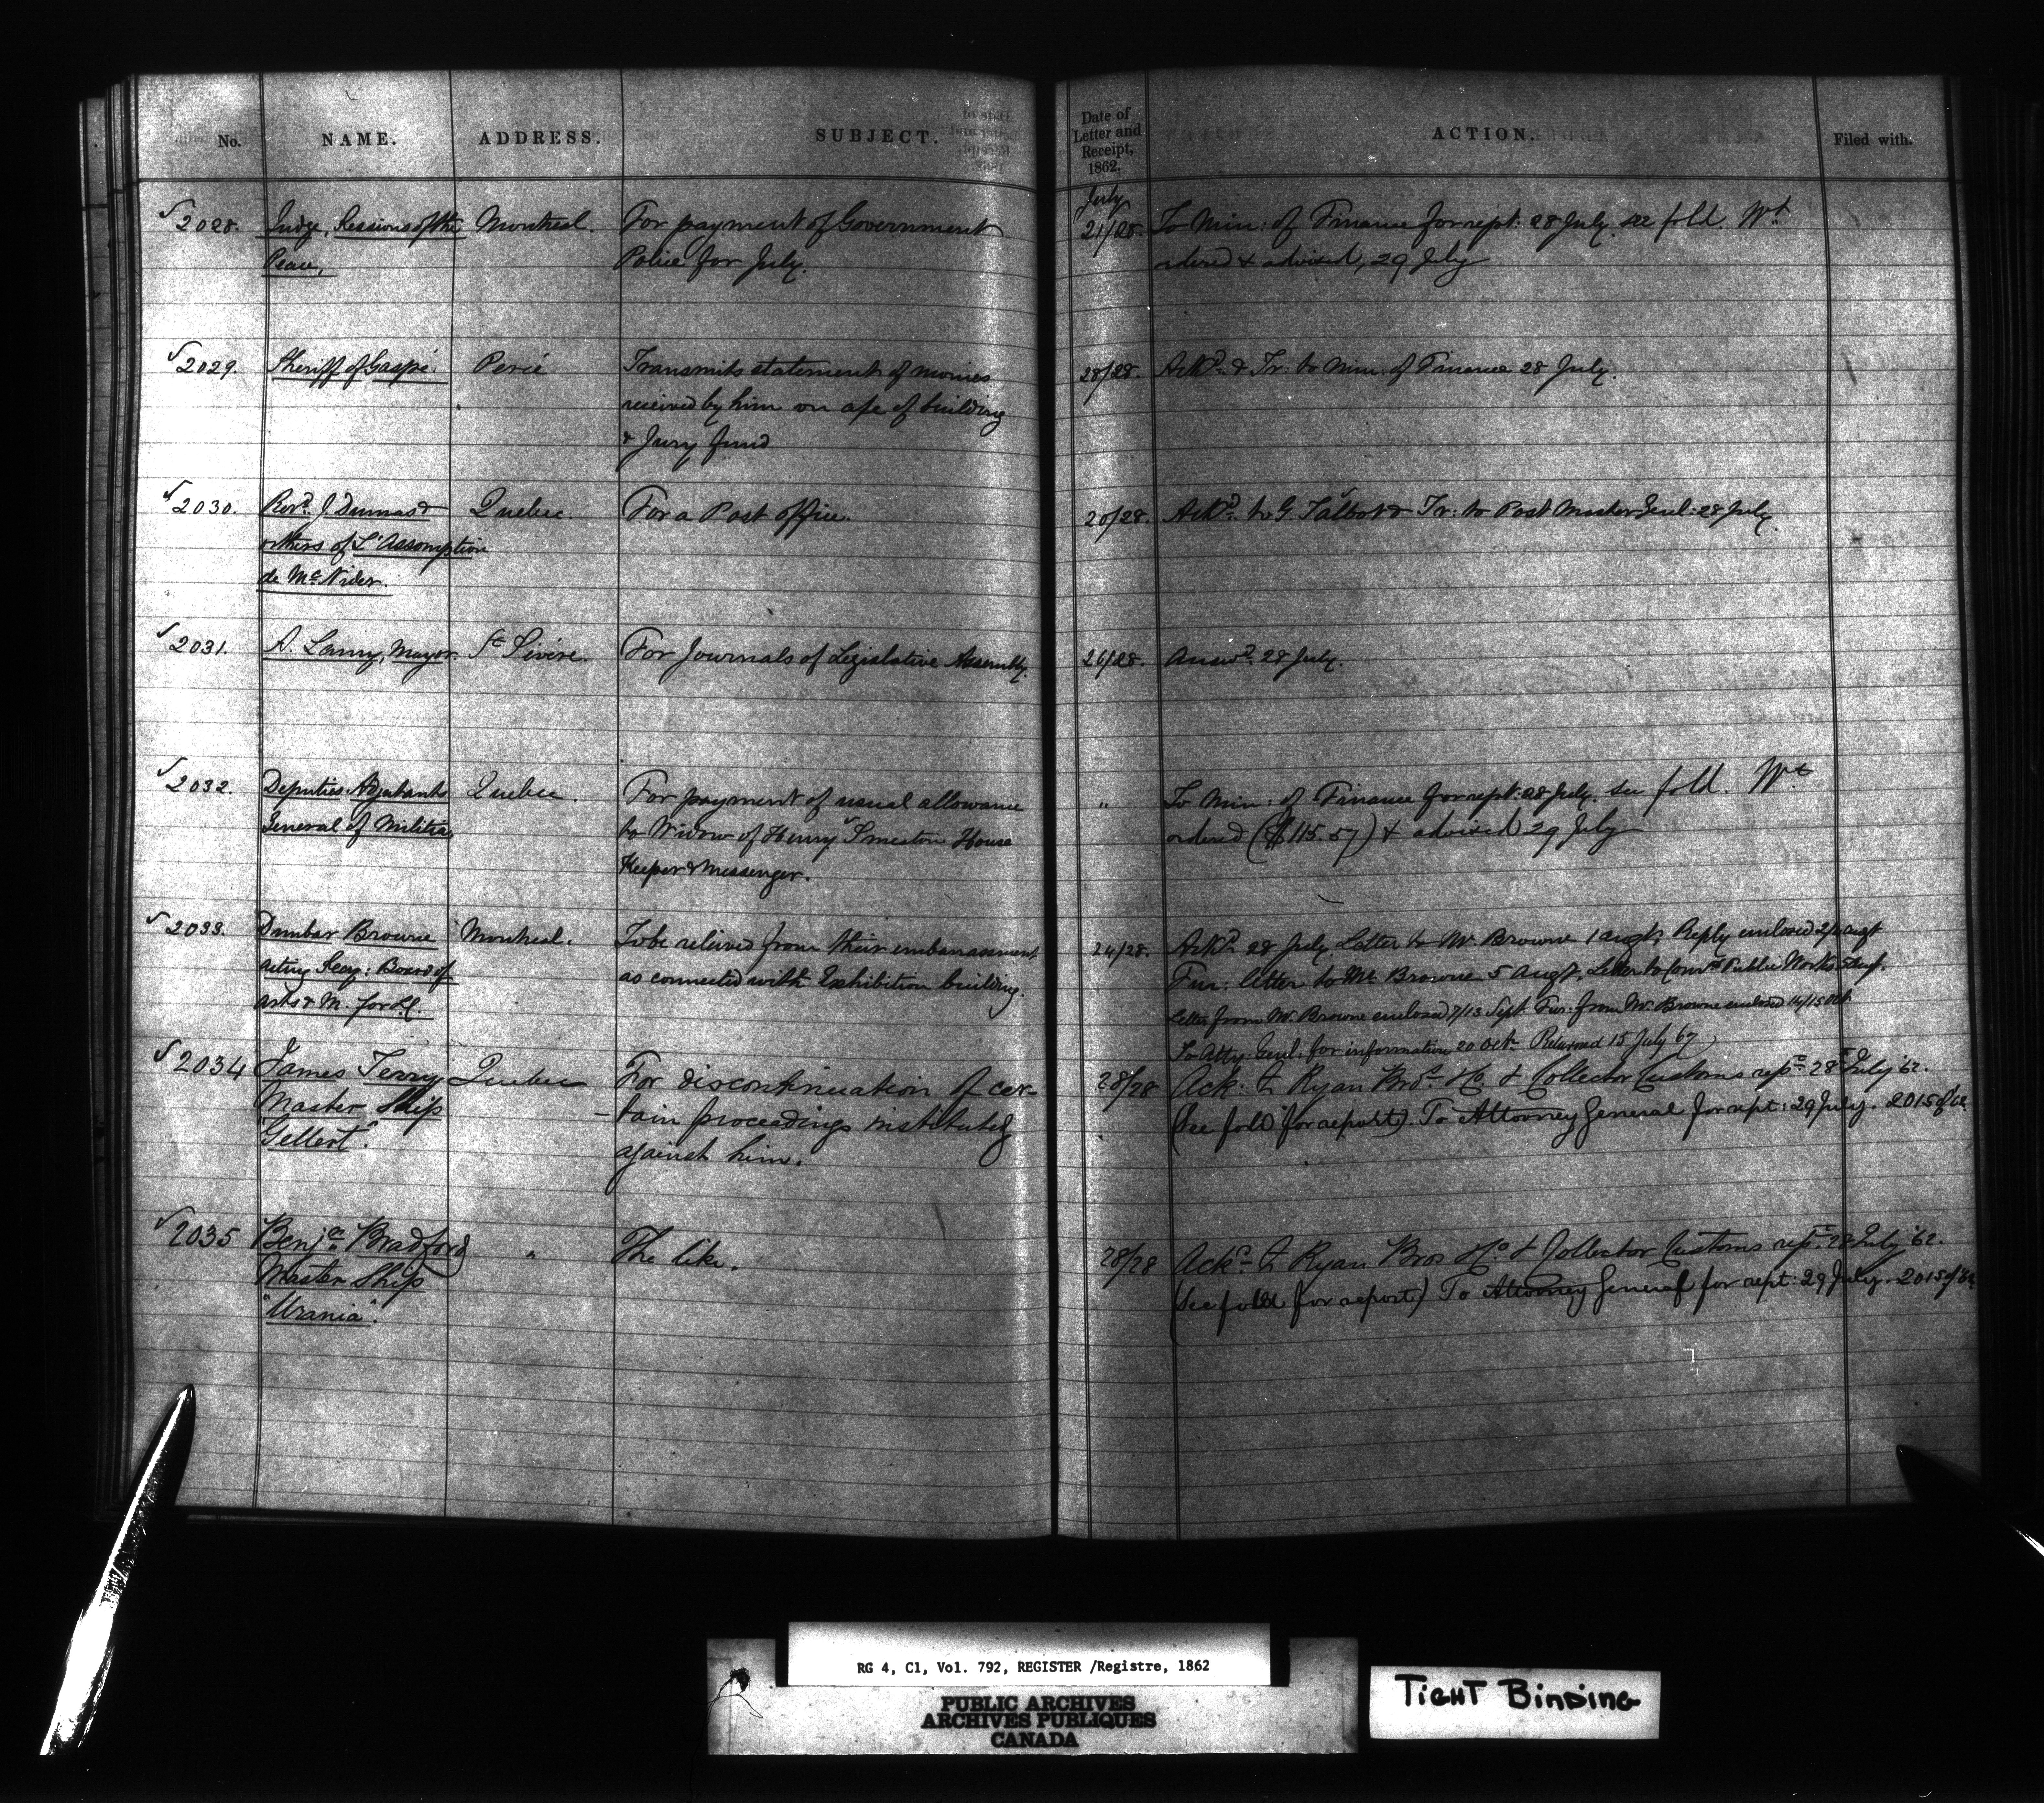 No. NAME. ADDRESS. SUBJECT. Date of Letter and Receipt, 1862. ACTION. Filed with.
July
2028. Judge, Sessions of the Montreal. For payment of Government 21/28. To Min: of Finance for rept: 28 July. see fold. Wt
Peace, Police for July. ordered & advised, 29 July
2029. Sheriff of Gaspé Percé Transmits statement of monies 28/28. Ackd. & Tr: to Min. of Finance 28 July.
received by him on a/c of building
& Jury fund
2030. Revd. J. Dumas & Quebec. For a Post office. 20/28. Ackd. to G. Talbot & Tr: to Post Master Genl: 28 July.
others of L'Assomption
de McNider.
2031. A. Lamy, Mayor St Sévère. For Journals of Legislative Assembly. 26/28. Answd. 28 July.
2032. Deputies Adjutants Quebec. For payment of usual allowance " To Min: of Finance for rept: 28 July. see fold. Wt
General of Militia to Widow of Henry Smeaton House ordered ($115.57) & advised 29 July
Keeper & Messenger.
2033. Dunbar Browne Montreal. To be relieved from their embarrassment 24/28. Ackd. 28 July. Letter to Mr Browne 1 augt. Reply enclosed 2/ augt
acting Secy: Board of as connected with Exhibition building. Fur: letter to Mr Browne 5 Augt. Letter to Comrs Public Works
arts & M. for L.C. Letter from Mr Browne enclosed 7/13 Sept. Fur: from Mr Browne enclosed 14/15 Oct.
To Atty Genl: for information 20 Octr. Returned 15 July 67
2034 James Terry Quebec For discontinuation of cer- 28/28 Ack. to Ryan Bros. & Co. & Collector Customs rept. 28 July '62.
Master Ship -tain proceedings instituted (See fold for report). To Attorney General for rept: 29 July. 2015 of 62
"Gellert". against him.
2035 Benja. Bradford " The like. 28/28 Ackd. to Ryan Bros & Co. & Collector Customs rept. 28 July '62.
Master Ship (See fold for report) To Attorney General for rept: 29 July. 2015 of 62
"Urania".
RG 4, C1, Vol. 792, REGISTER /Registre, 1862
PUBLIC ARCHIVES
ARCHIVES PUBLIQUES
CANADA
TIGHT BINDING